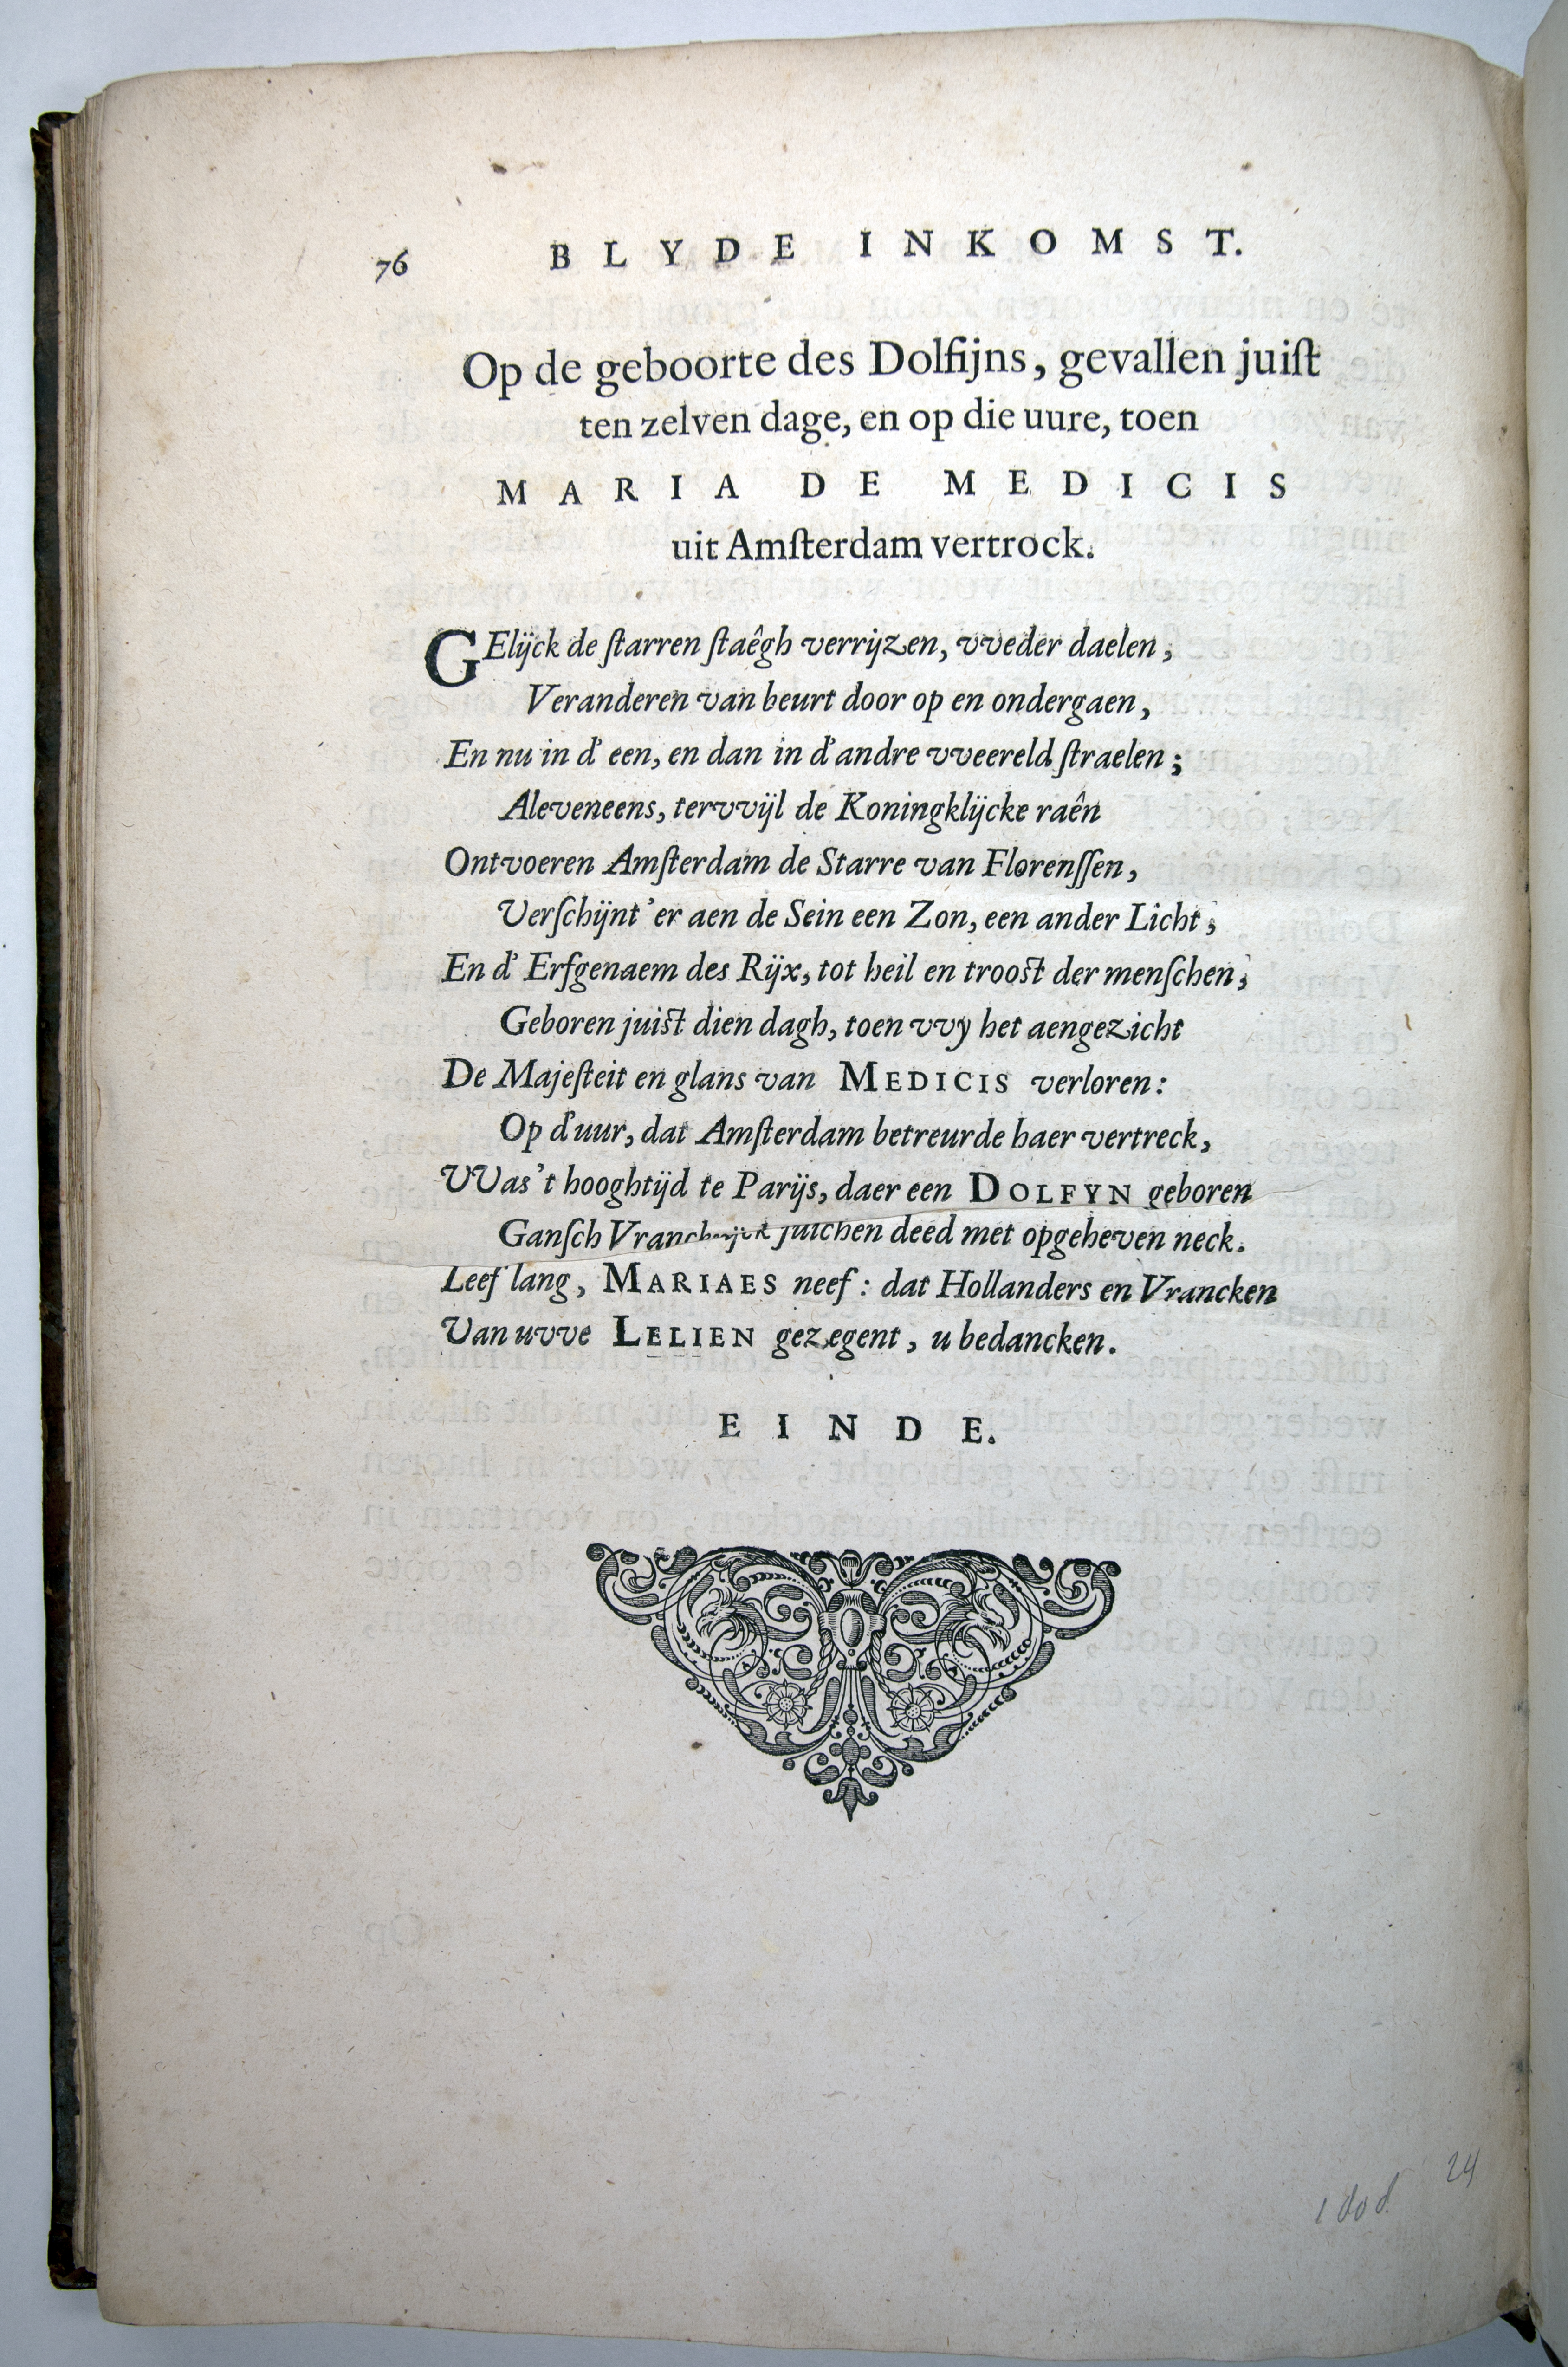 76 BLYDE INKOMST.
Op de geboorte des Dolfijns, gevallen juiſt
ten zelven dage, en op die uure, toen
MARIA DE MEDICIS
uit Amſterdam vertrock.
GElijck de ſtarren ſtaêgh verrijzen, vveder daelen,
Veranderen van beurt door op en ondergaen,
En nu in d' een, en dan in d'andre vveereld ſtraelen;
Aleveneens, tervvijl de Koningklijcke raên
Ontvoeren Amſterdam de Starre van Florenſſen,
Verſchijnt 'er aen de Sein een Zon, een ander Licht,
En d' Erfgenaem des Rijx, tot heil en trooſt der menſchen,
Geboren juiſt dien dagh, toen vvy het aengezicht
De Majeſteit en glans van MEDICIS verloren:
Op d'uur, dat Amſterdam betreurde haer vertreck,
VVas't hooghtijd te Parijs, daer een DOLFYN geboren
Ganſch Vranckrijck juichen deed met opgeheven neck.
Leef lang, MARIAES neef: dat Hollanders en Vrancken
Van uvve LELIEN gezegent, u bedancken.
EINDE.
24